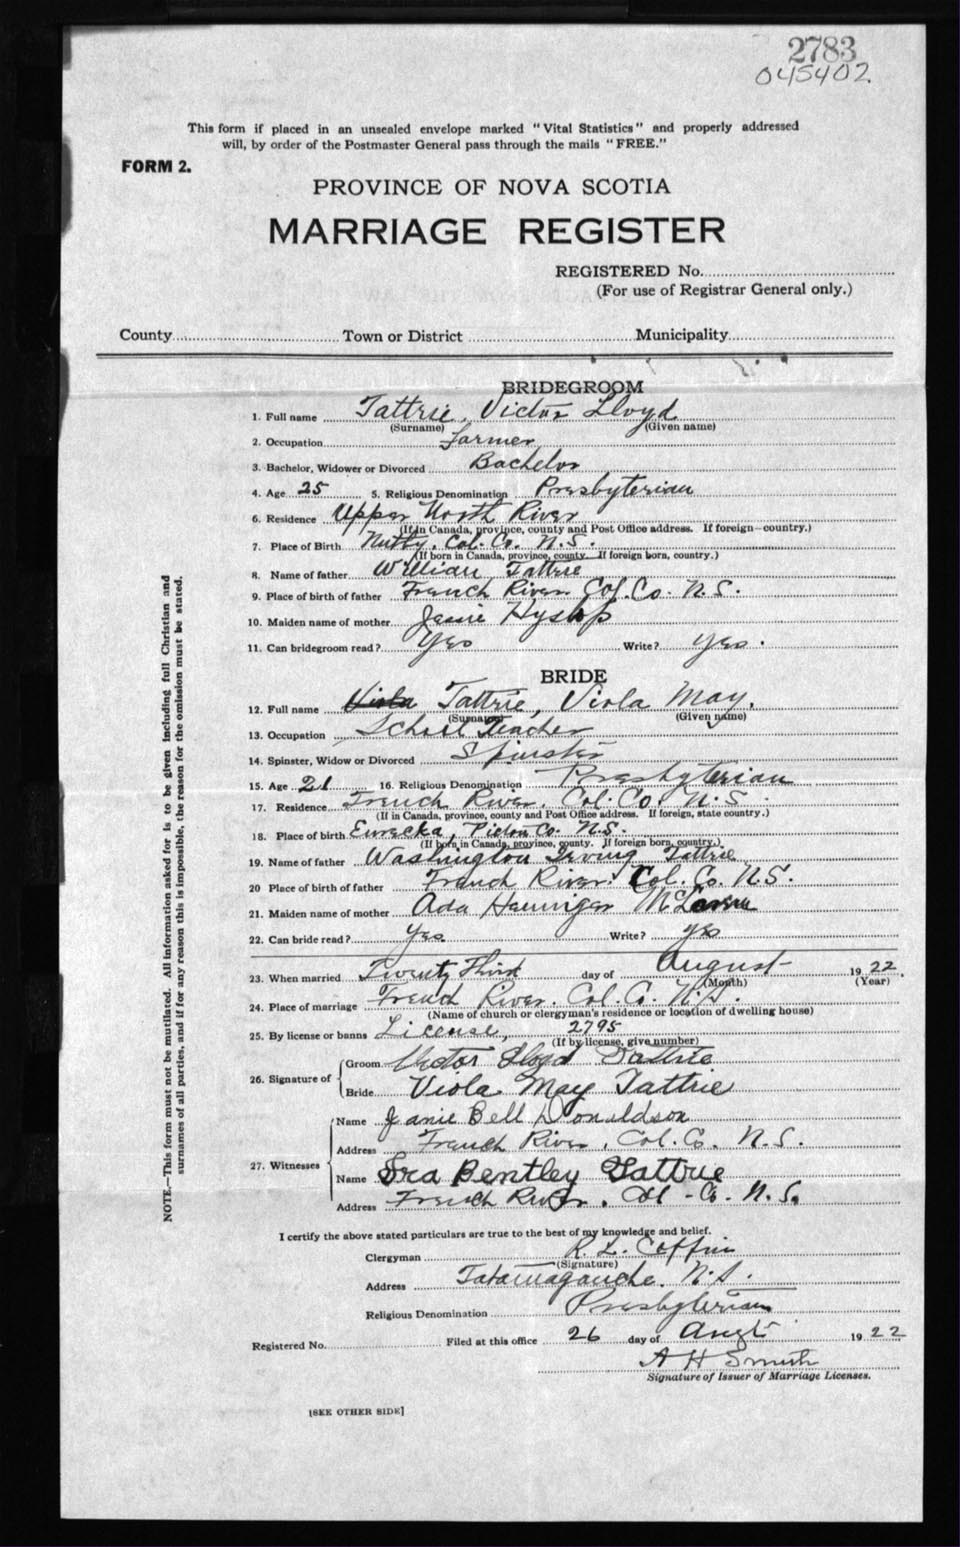 2783
045402
This form if placed in an unsealed envelope marked "Vital Statistics" and properly addressed
will, by order of the Postmaster General pass through the mails "FREE."
FORM 2.
PROVINCE OF NOVA SCOTIA
MARRIAGE REGISTER
REGISTERED No.
(For use of Registrar General only.)
County Town or District Municipality
BRIDEGROOM
1. Full name Tattrie, Victor Lloyd
(Surname) (Given name)
2. Occupation Farmer
3. Bachelor, Widower or Divorced Bachelor
4. Age 25 5. Religious Denomination Presbyterian
6. Residence Upper North River
(If in Canada, province, county and Post Office address. If foreign—country.)
7. Place of Birth Nuttby, Col. Co. N.S.
(If born in Canada, province, county. If foreign born, country.)
8. Name of father William Tattrie
9. Place of birth of father French River Col. Co. N.S.
10. Maiden name of mother Jessie Hyslop
11. Can bridegroom read? Yes Write? Yes.
BRIDE
12. Full name Viola Tattrie, Viola May.
(Surname) (Given name)
13. Occupation School Teacher
14. Spinster, Widow or Divorced Spinster
15. Age 21 16. Religious Denomination Presbyterian
17. Residence French River. Col. Co. N.S.
(If in Canada, province, county and Post Office address. If foreign, state country.)
18. Place of birth Eureka, Pictou Co. N.S.
(If born in Canada, province, county. If foreign born, country.)
19. Name of father Washington Irving Tattrie
20 Place of birth of father French River. Col. Co. N.S.
21. Maiden name of mother Ada
22. Can bride read? Yes Write? Yes
23. When married Twenty Third day of August 1922.
(Month) (Year)
24. Place of marriage French River. Col. Co. N.S.
(Name of church or clergyman's residence or location of dwelling house)
25. By license or banns License, 2795
(If by license, give number)
26. Signature of
Groom Victor Lloyd Tattrie
Bride Viola May Tattrie
27. Witnesses
Name Janie Bell Donaldson
Address French River, Col. Co. N.S.
Name Ira Bentley Tattrie
Address French River, Col. Co. N.S.
I certify the above stated particulars are true to the best of my knowledge and belief.
Clergyman R. L. Coffin
(Signature)
Address Tatamagouche. N.S.
Religious Denomination Presbyterian
Registered No. Filed at this office 26 day of Augt 1922
A H Smith
Signature of Issuer of Marriage Licenses.
[SEE OTHER SIDE]
NOTE.—This form must not be mutilated. All information asked for is to be given including full Christian and
surnames of all parties, and if for any reason this is impossible, the reason for the omission must be stated.